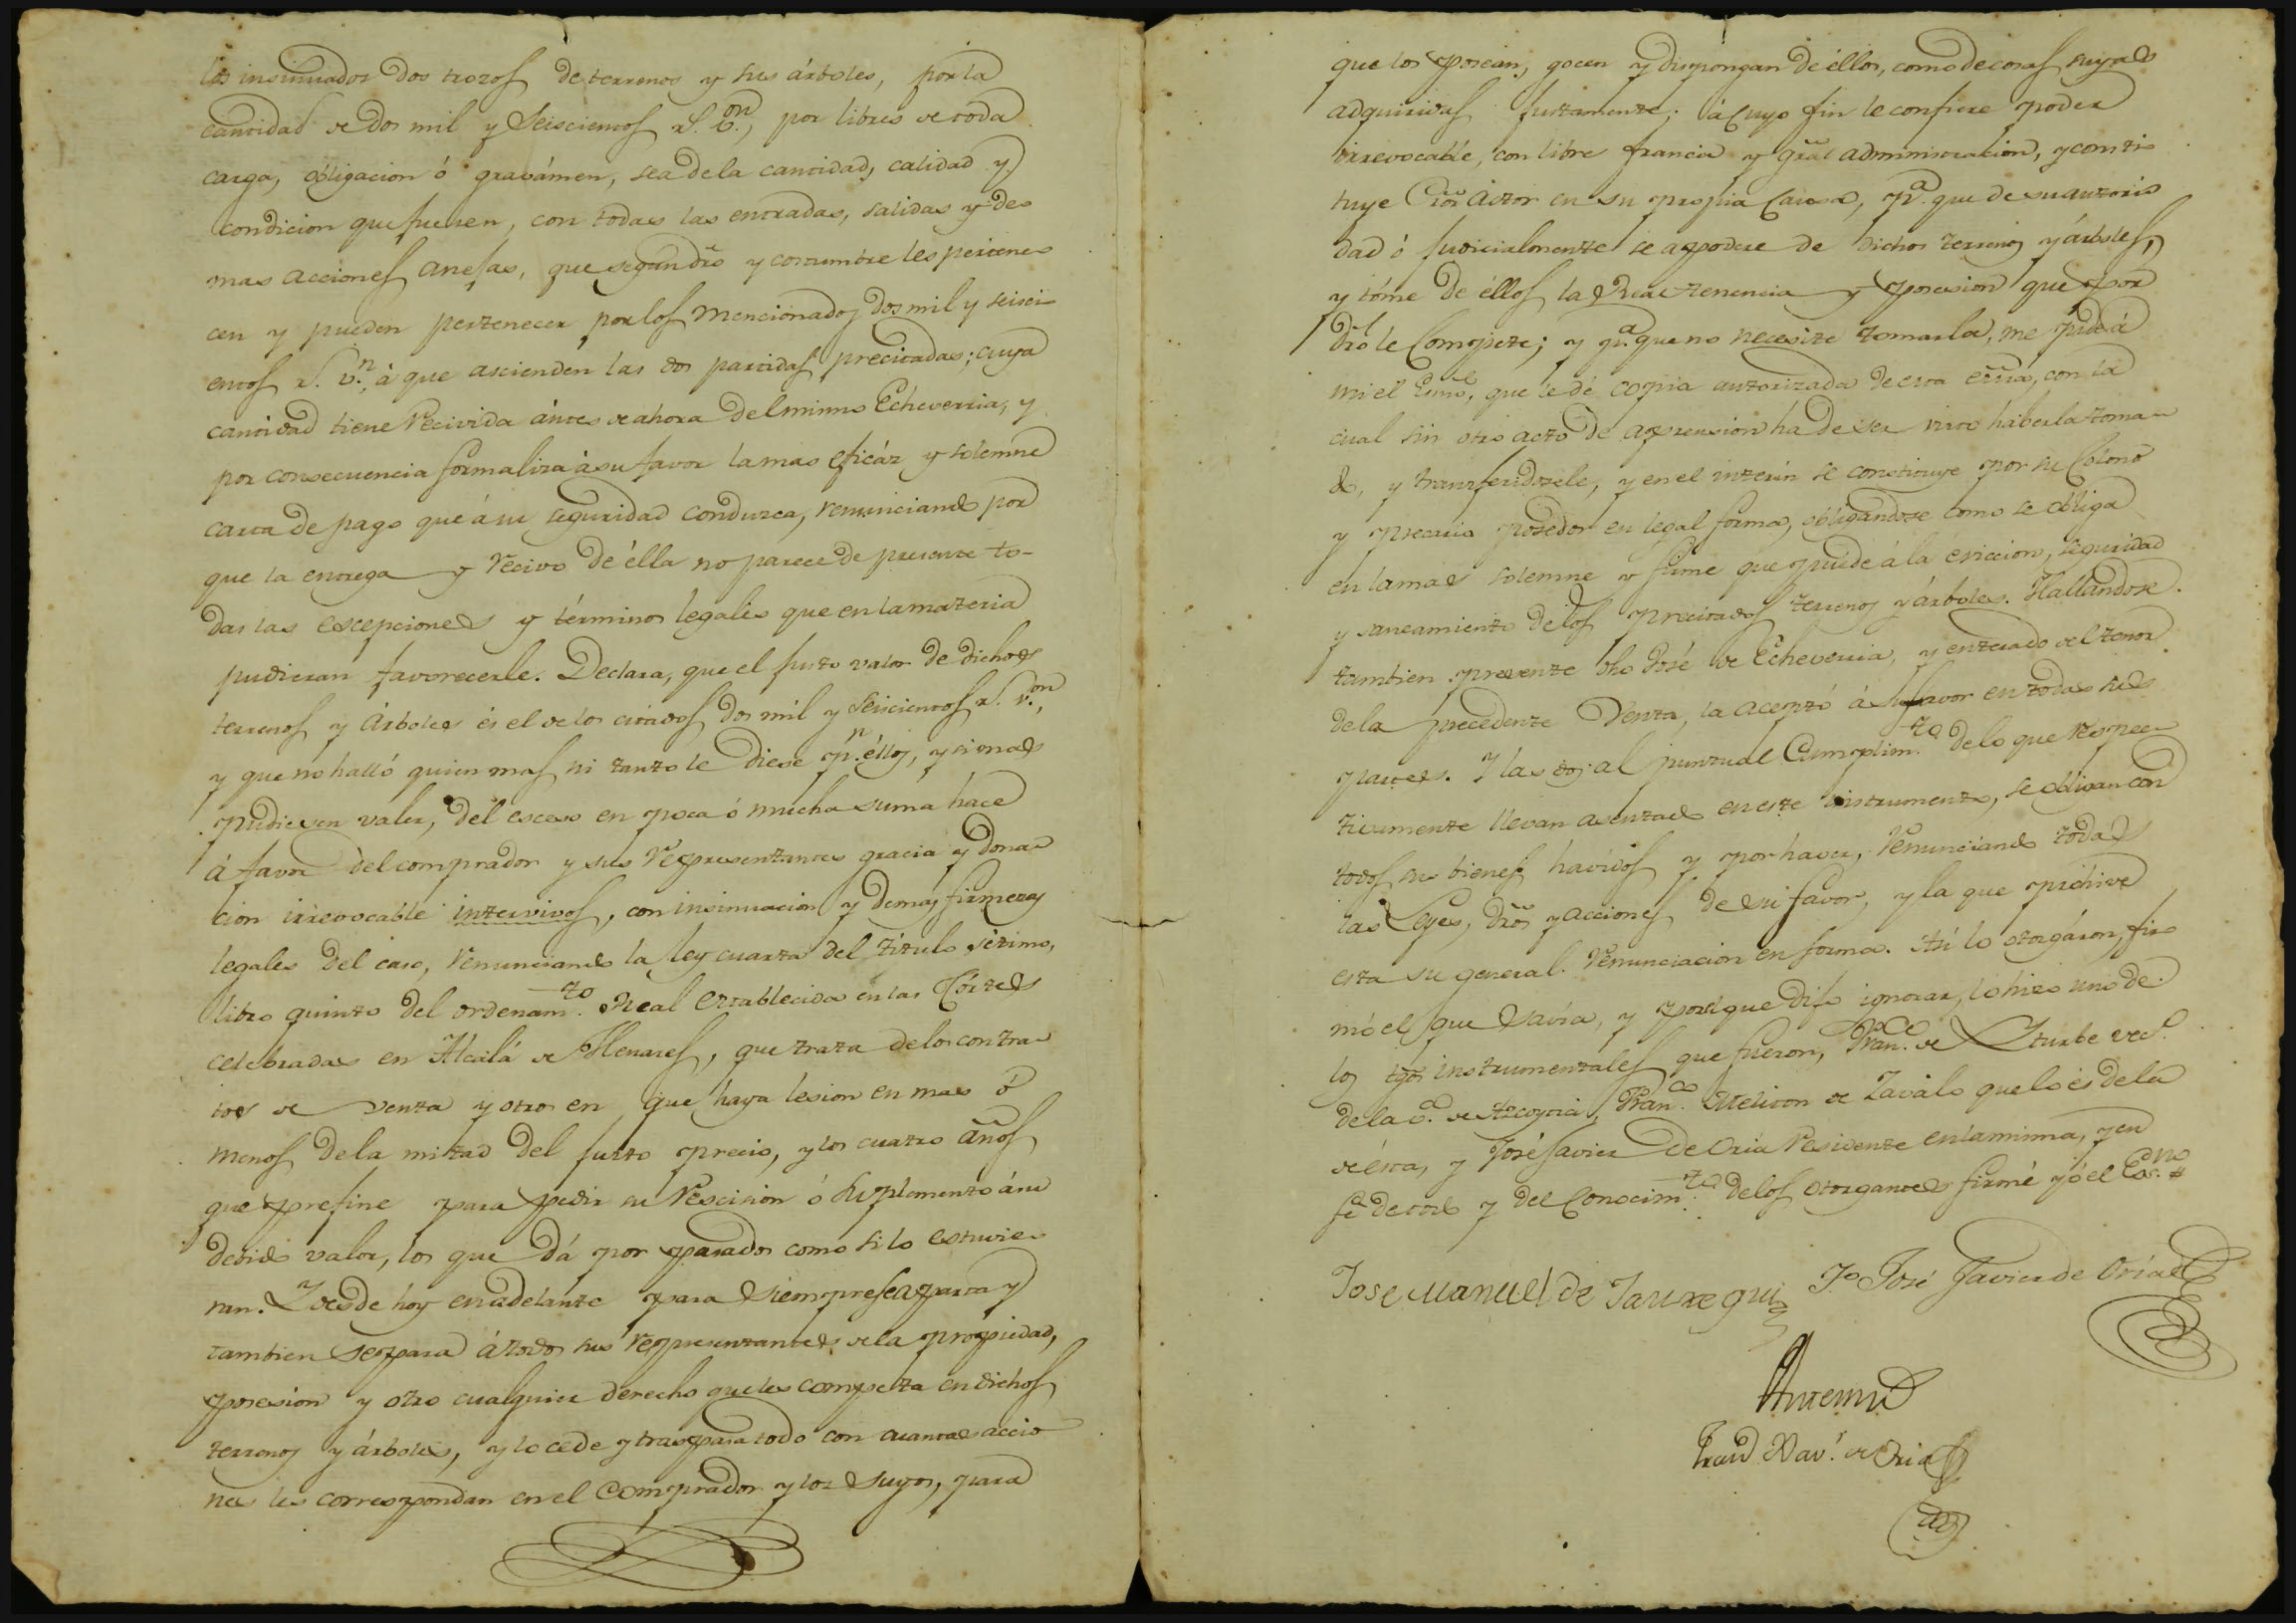 los insinuados dos trozos de terrenos y sus árboles, por la
cantidad de dos mil y Seiscientos rs. von., por libres de toda
carga, obligacion ó gravámen, sea de la cantidad, calidad y
condicion que fuesen, con todas las entradas, salidas y de
mas acciones anesas, que segun dro. y costumbre les pertene
cen y pueden pertenecer por los mencionados dos mil y seisci
entos rs. vn., á que ascienden las dos partidas precitadas; cuya
cantidad tiene recivida ántes de ahora del mismo Echeverria, y
por consecuencia formaliza á su favor la mas eficáz y solemne
carta de pago que á su seguridad conduzca, renunciando por
que la entrega y recivo de élla no parece de presente to-
das las escepciones y términos legales que en la materia
pudieran favorecerle. Declara, que el justo valor de dichos
terrenos y árboles es el de los citados dos mil y seiscientos rs. von.,
y que no halló quien mas ni tanto le diese pr. éllos, y si mas
pudiesen valer, del esceso en poca ó mucha suma hace
á favor del comprador y sus representantes gracia y dona
cion irrevocable intervivos, con insinuacion y demas firmezas
legales del caso, renunciando la ley cuarta del título sétimo,
libro quinto del ordenamto. Real establecida en las Córtes
celebradas en Alcalá de Henares, que trata de los contra
tos de venta y otros en que haya lesion en mas ó
menos de la mitad del justo precio, y los cuatro años
que prefine para pedir su rescision ó suplemento á su
debido valor, los que dá por pasados como si lo estuvie
ran. Y desde hoy en adelante para siempre se aparta y
tambien separa á todos sus representantes de la propiedad,
posesion y otro cualquier derecho que les competa en dichos
terrenos y árboles, y lo cede y traspasa todo con cuantas accio
nes les correspondan en el comprador y los suyos, para
que los posean, gocen y dispongan de éllos, como de cosas suyas
adquiridas justamente; á cuyo fin le confiere poder
irrevocable, con libre franca y gral administracion, y consti
tuye Pror. actor en su propia causa, pa. que de su autori
dad ó judicialmente se apodere de dichos terrenos y árboles,
y tóme de éllos la Real tenencia y posesion que por
dro le compete; y pa. que no necesite tomarla, me pide á
mi el Esno, que le dé copia autorizada de esta essra, con la
cual sin otro acto de aprension há de ser visto haberla toma
do, y transferidosele, y en el interin se constituye por su Colono
y precario poseedor en legal forma, obligandose como se obliga
en la mas solemne y firme que puede á la eviccion, seguridad
y saneamiento de los precitados terrenos y árboles. Hallandose
tambien presente dho José de Echeverria, y enterado del tenor
de la precedente venta, la aceptó á su favor en todas sus
partes. Y las dos al puntual Cumplimto. de lo que respec
tivamente llevan asentado en este instrumento, se obligan con
todos sus bienes havidos y por haver, renunciando todas
las Leyes, dros y acciones de su favor, y la que prohive
esta su general renunciacion en forma. Así lo otorgáron, fir
mó el que savia, y por el que dijo ignorar, lo hizo uno de
los tgos instrumentales que fueron, Franco. de Yturbe vec.
de la va. de Azcoytia, Franco. Meliton de Zavalo que lo es de la
de ésta, y José Javier de Oria residente en la misma, y en
fé de todo y del Conocimto. de los otorgantes firmé yó el Esno. #
Jose Manuel de Jauregui To. José Javier de Oria
Antemi
Franco Xavr. de Oria